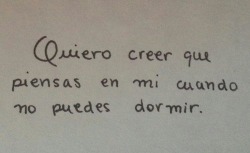 Quiero creer que
piensas en mi cuando
no puedes dormir.